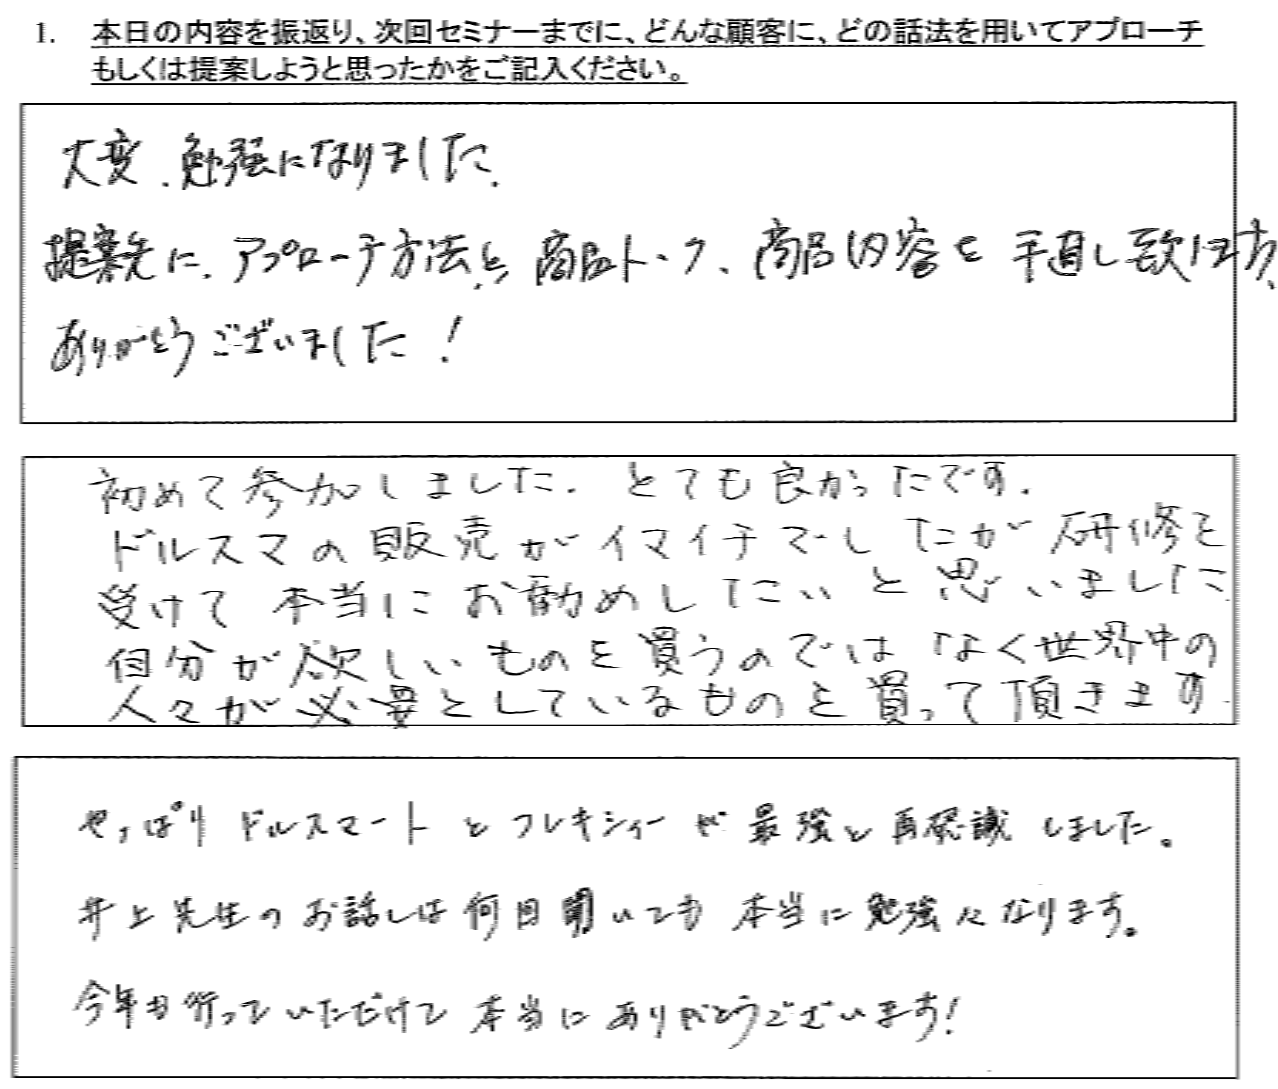 1. 本日の内容を振返り、次回セミナーまでに、どんな顧客に、どの話法を用いてアプローチ
もしくは提案しようと思ったかをご記入ください。
大変、勉強になりました。
提案先に、アプローチ方法と、商品トーク、商品内容を手直し致します。
ありがとうございました!
初めて参加しました。とても良かったです。
ドルスマの販売がイマイチでしたが研修を
受けて本当にお勧めしたいと思いました
自分が欲しいものを買うのではなく世界中の
人々が必要としているものを買って頂きます
やっぱりドルスマートとフレキシィーが最強と再認識しました。
井上先生のお話しは何回聞いても本当に勉強になります。
今年も行っていただけて本当にありがとうございます!